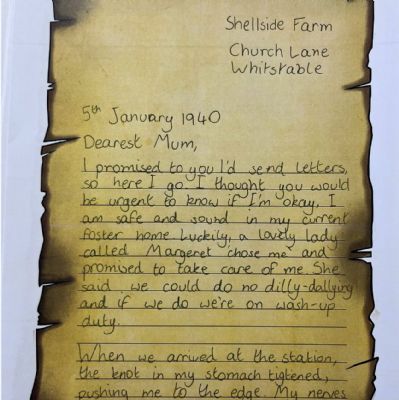 Shellside Farm
Church Lane
Whitstable
5th January 1940
Dearest Mum,
I promised to you I'd send letters,
so here I go. I thought you would
be urgent to know if I'm okay. I
am safe and sound in my current
foster home. Luckily, a lovely lady
called Margeret chose me and
promised to take care of me. She
said we could do no dilly-dallying
and if we do we're on wash-up
duty.
When we arrived at the station,
the knot in my stomach tigtened,
pushing me to the edge. My nerves